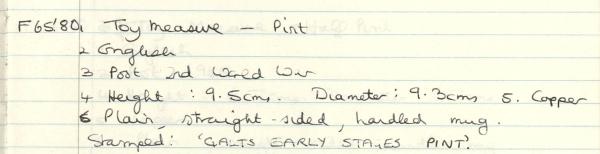 F65'80. 1 Toy measure – Pint
2 English
3 Post 2nd World War
4 Height : 9.5cms. Diameter : 9.3cms 5. Copper
6 Plain, straight-sided, handled mug.
Stamped: 'GALTS EARLY STAGES PINT'.